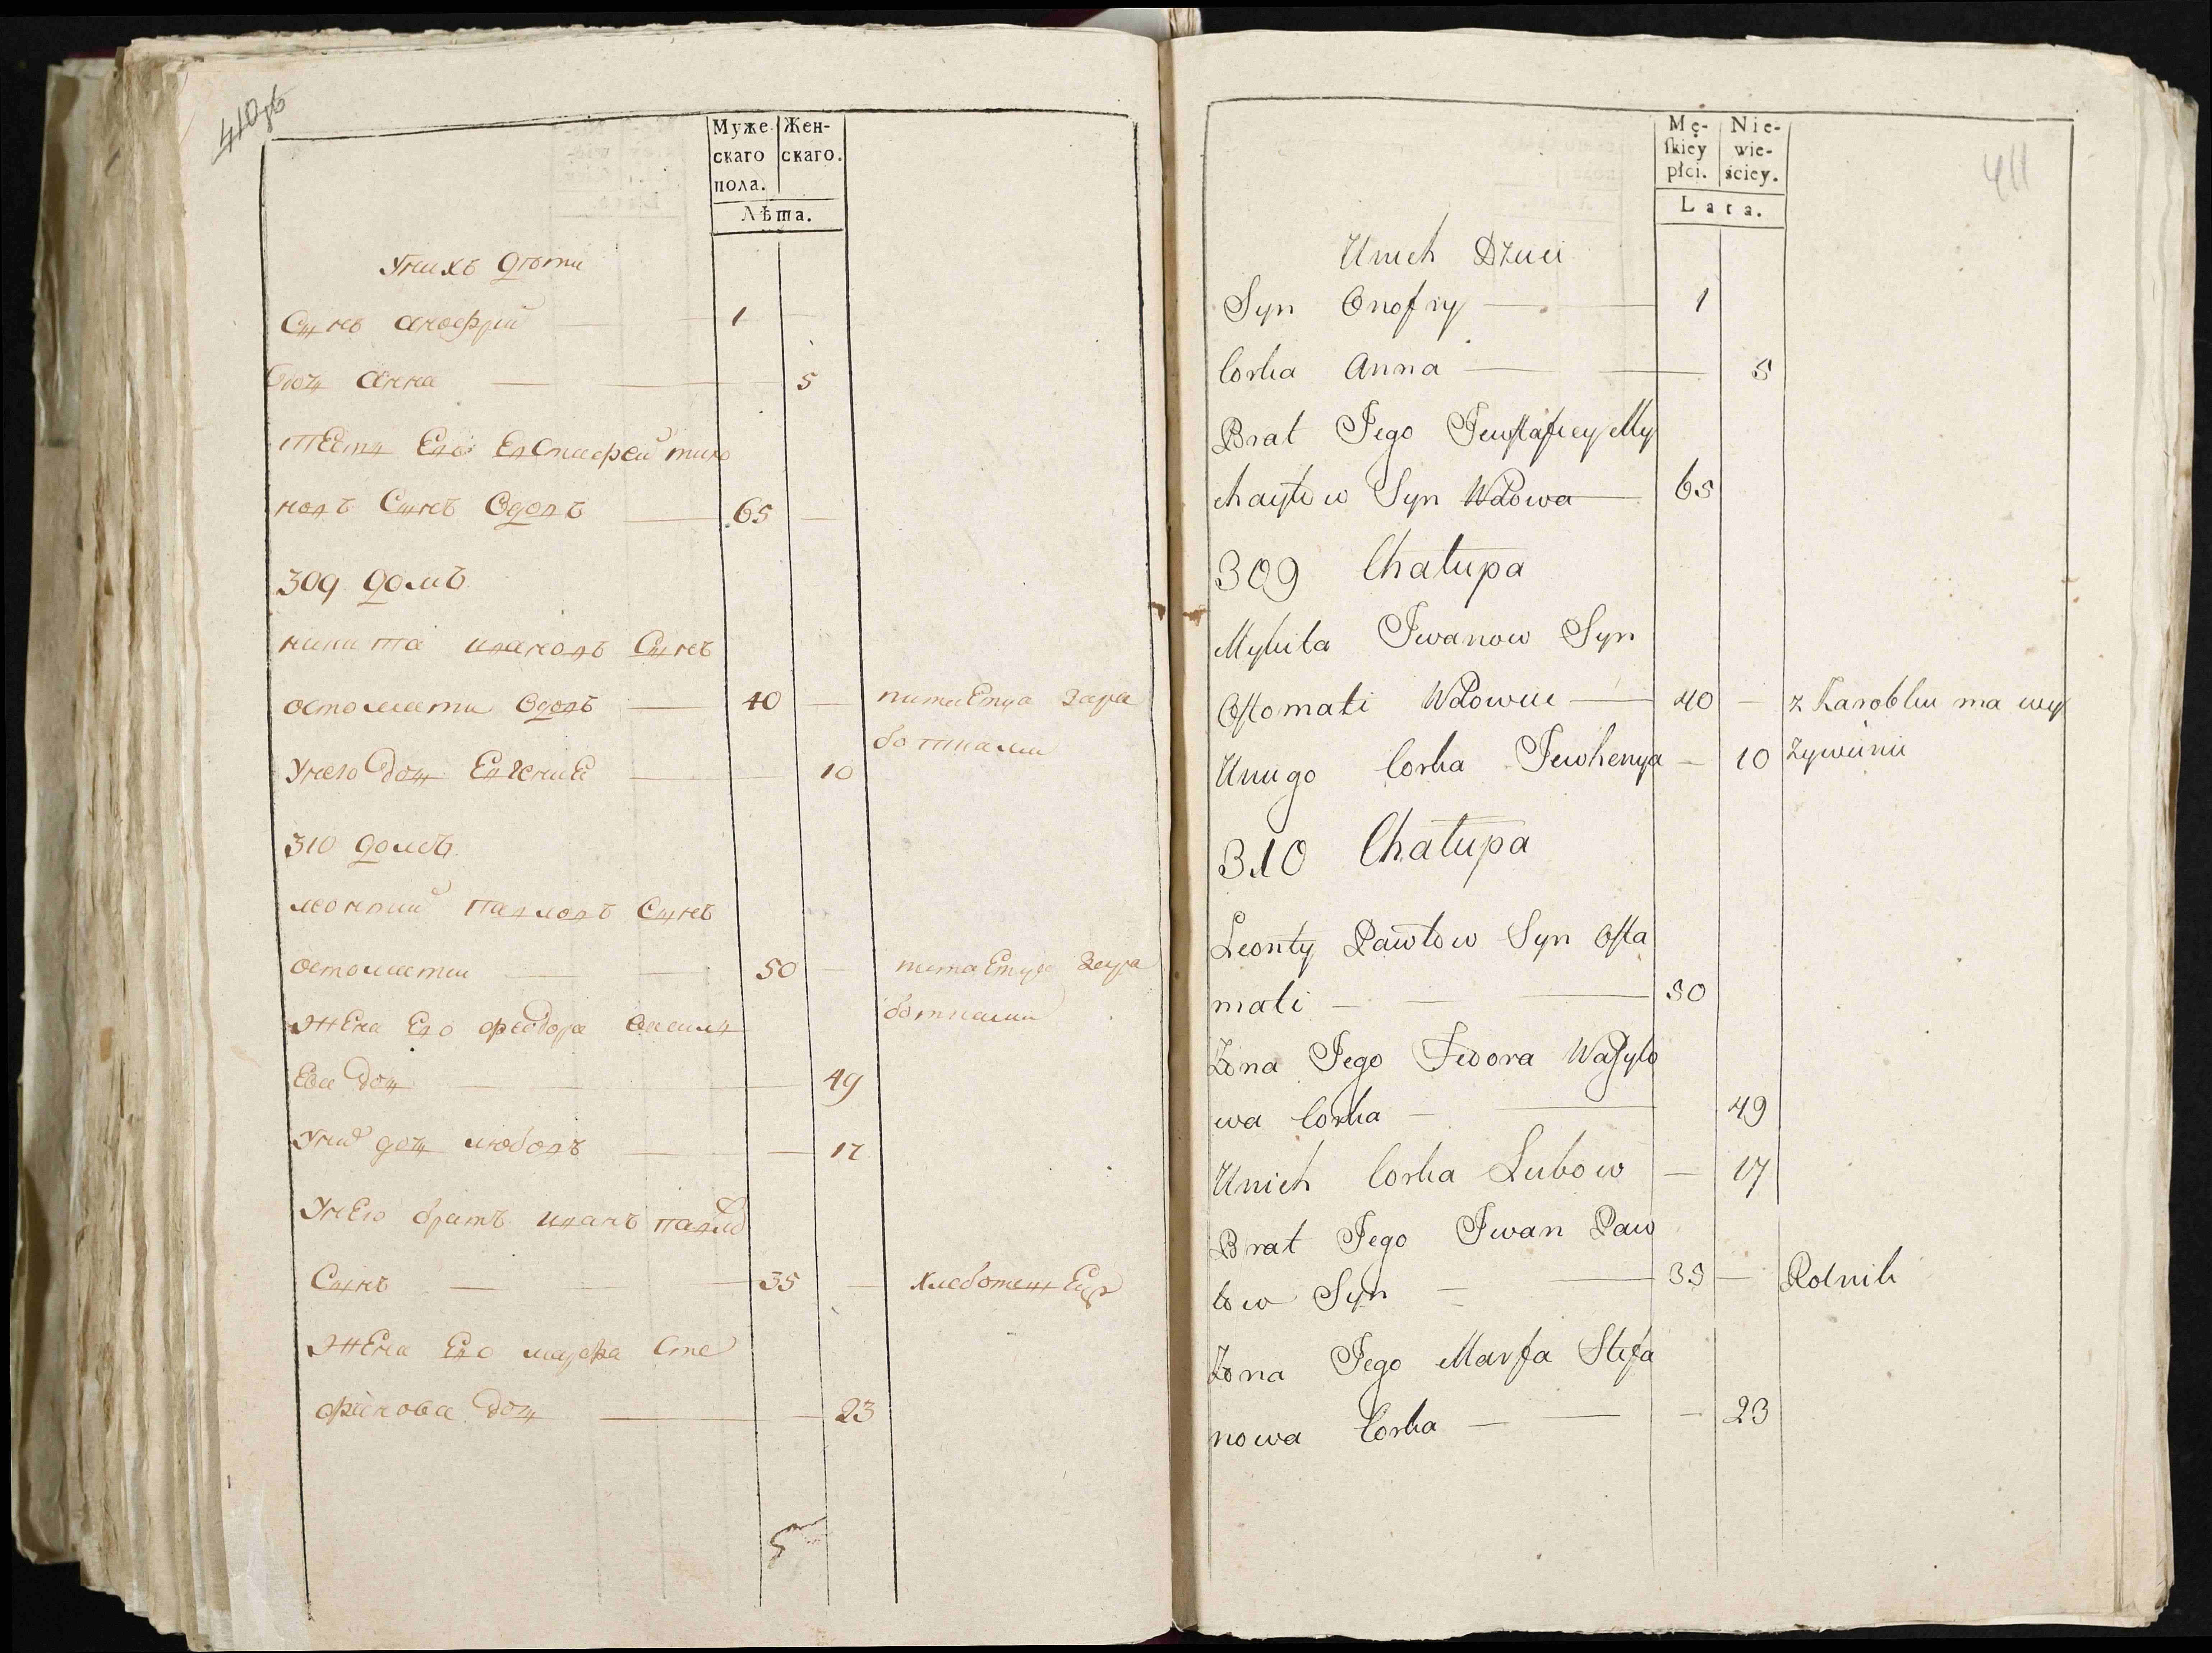 410 об
Муже- Жен-
скаго скаго.
пола.
Лѣта.
У них дѣти
Сынъ Анофрий 1
Дочь Анна 5
Тесть Его Евстафей
новъ Сынъ вдовъ 65
309 домъ
никита ивановъ Сынъ
остомати вдовъ 40 питаетца зара
ботками
У него дочь Евгения 10
310 домъ
леонтий павловъ Сынъ
остомати 50 питаетца зара
ботками
Жена Его феодора василь
Ева дочь 49
У них дочь любовъ 17
У него братъ иванъ павлов
Сынъ 35
Жена Его марфа Сте
фанова дочь 23
5
411
Mę- Nie-
skiey wie-
płci. ściey.
Lata.
U nich Dzieci
Syn Onofry 1
Corka Anna 5
Brat Jego Jewstafiey My
chayłow Syn Wdowa 65
309 Chałupa
Mykita Iwanow Syn
Ostomati Wdowiec 40 z Zarobku ma wy
Uniego Corka Jewhenya 10 żywienie
310 Chałupa
Leonty Pawłow Syn Osta
mati 50
Żona Jego Fedora Wasylo
wa Corka 49
Unich Corka Lubow 17
Brat Jego Iwan Paw
łow Syn 35 Rolnik
Żona Jego Marfa Stefa
nowa Corka 23